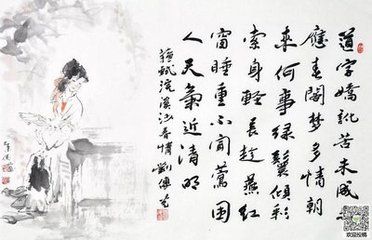 道字嬌訛苦未成未
應春閣夢多情朝
來何事綠鬟傾彩
索身輕長趁燕紅
窗睡重不聞鶯困
人天氣近清明
蘇軾浣溪沙春情
欢迎投稿